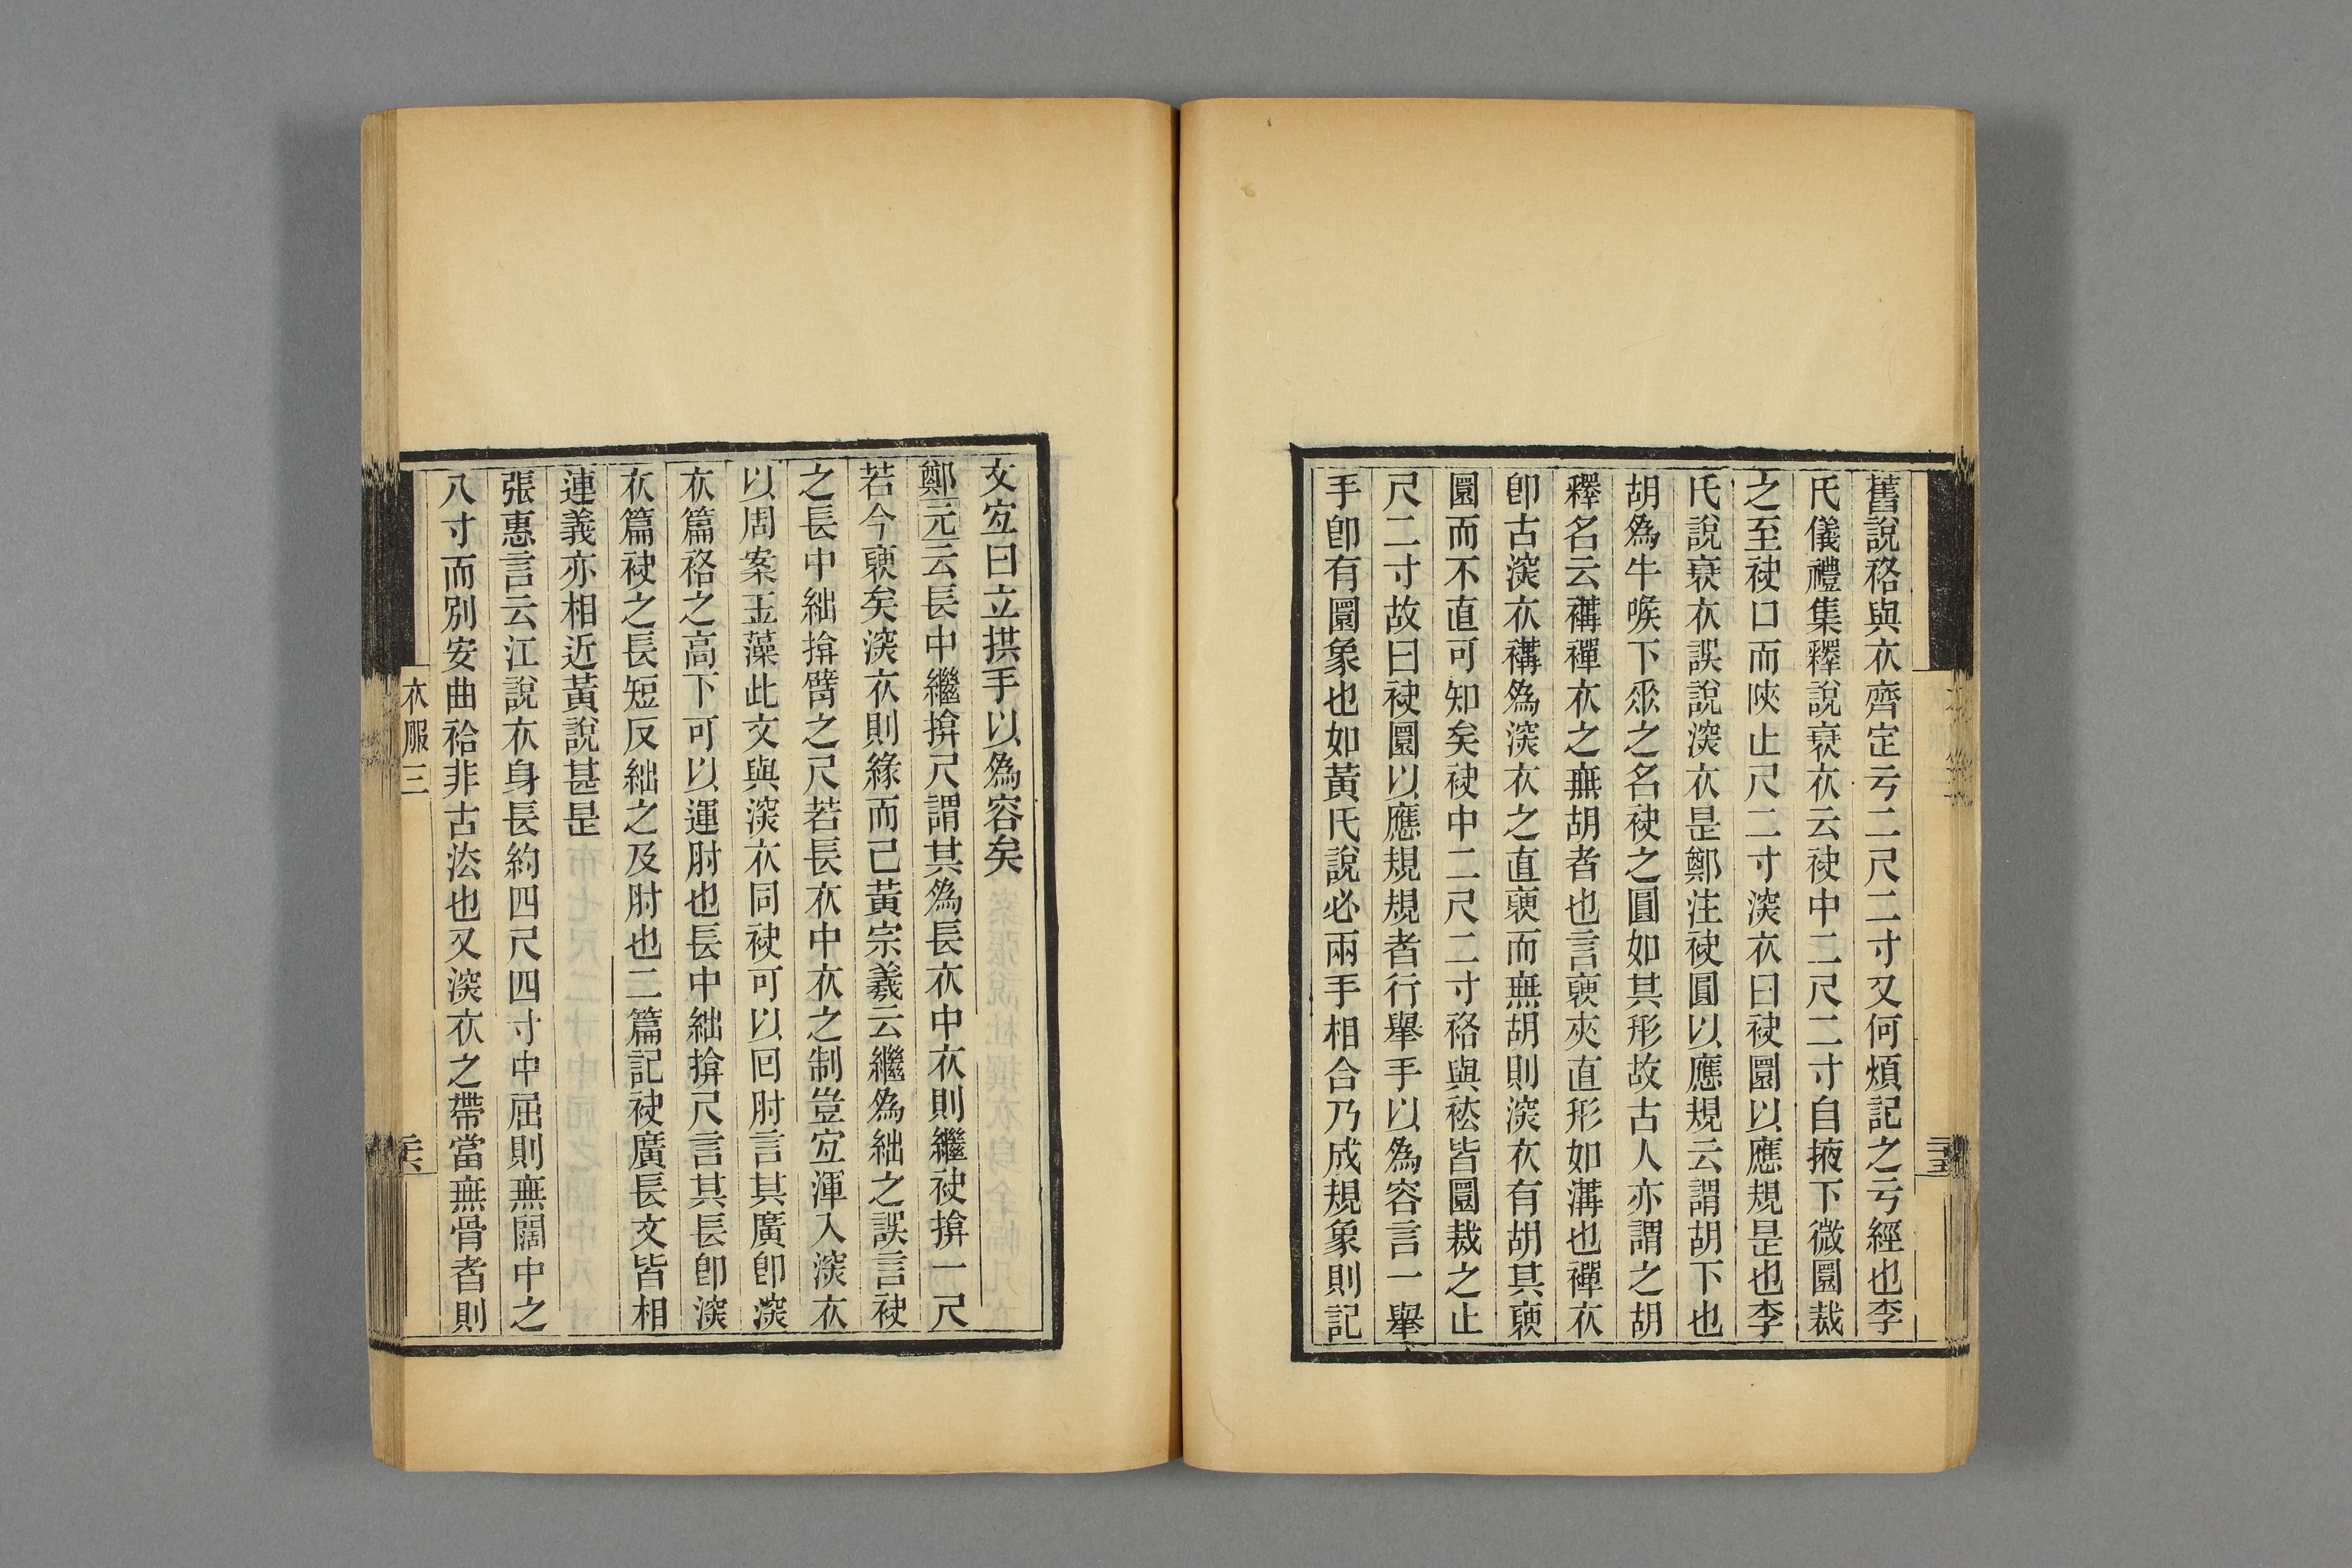 舊說袼與衣齊定亏二尺二寸又何煩記之亏經也李
氏儀禮集釋說衰衣云袂中二尺二寸自掖下微圜裁
之至袂口而陜止尺二寸深衣曰袂圜以應規是也李
氏說衰衣誤說深衣是鄭注袂圓以應規云謂胡下也
胡爲牛喉下𠂹之名袂之圓如其形故古人亦謂之胡
釋名云褠襌衣之無胡者也言袖夾直形如溝也襌衣
卽古深衣褠爲深衣之直袖而無胡則深衣有胡其袖
圜而不直可知矣袂中二尺二寸袼與袪皆圜裁之止
尺二寸故曰袂圜以應規規者行舉手以爲容言一舉
手卽有圜象也如黃氏說必兩手相合乃成規象則記
文宐曰立拱手以爲容矣
鄭元云長中繼揜尺謂其爲長衣中衣則繼袂揜一尺
若今袖矣深衣則緣而已黃宗羲云繼爲絀之誤言袂
之長中絀揜臂之尺若長衣中衣之制豈宐渾入深衣
以周案玉藻此文與深衣同袂可以回肘言其廣卽深
衣篇袼之高下可以運肘也長中絀揜尺言其長卽深
衣篇袂之長短反絀之及肘也二篇記袂廣長文皆相
連義亦相近黃說甚是
張惠言云江說衣身長約四尺四寸中屈則無闊中之
八寸而別安曲袷非古法也又深衣之帶當無骨者則
衣服三
三五